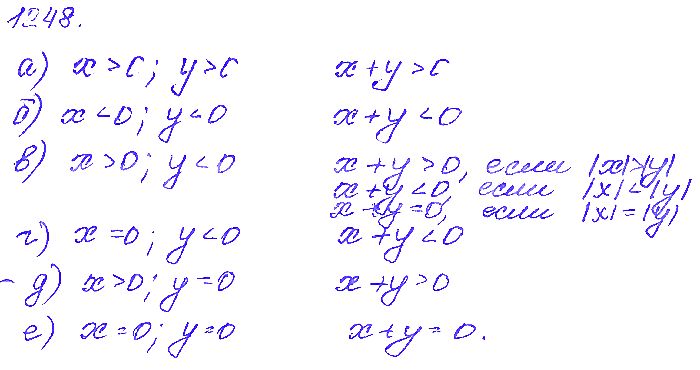 1248.
а) x > 0; y > 0 x + y > 0
б) x < 0; y < 0 x + y < 0
в) x > 0; y < 0 x + y > 0, если |x| > |y|
x + y < 0, если |x| < |y|
x + y = 0, если |x| = |y|
г) x = 0; y < 0 x + y < 0
д) x > 0; y = 0 x + y > 0
е) x = 0; y = 0 x + y = 0.